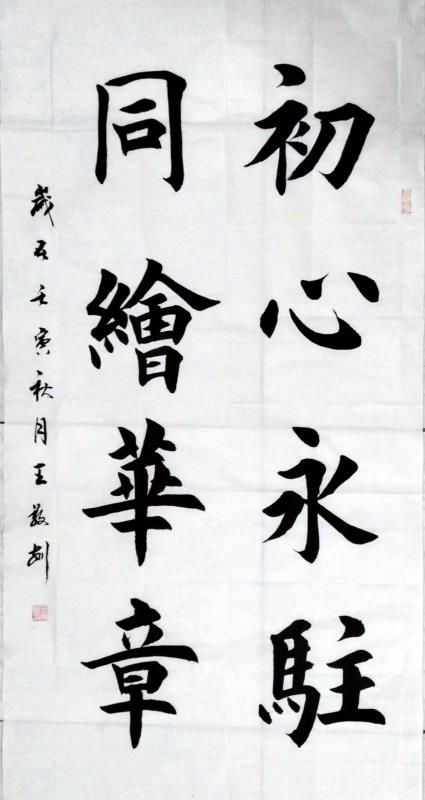 初心永駐
同繪華章
歲在壬寅秋月王